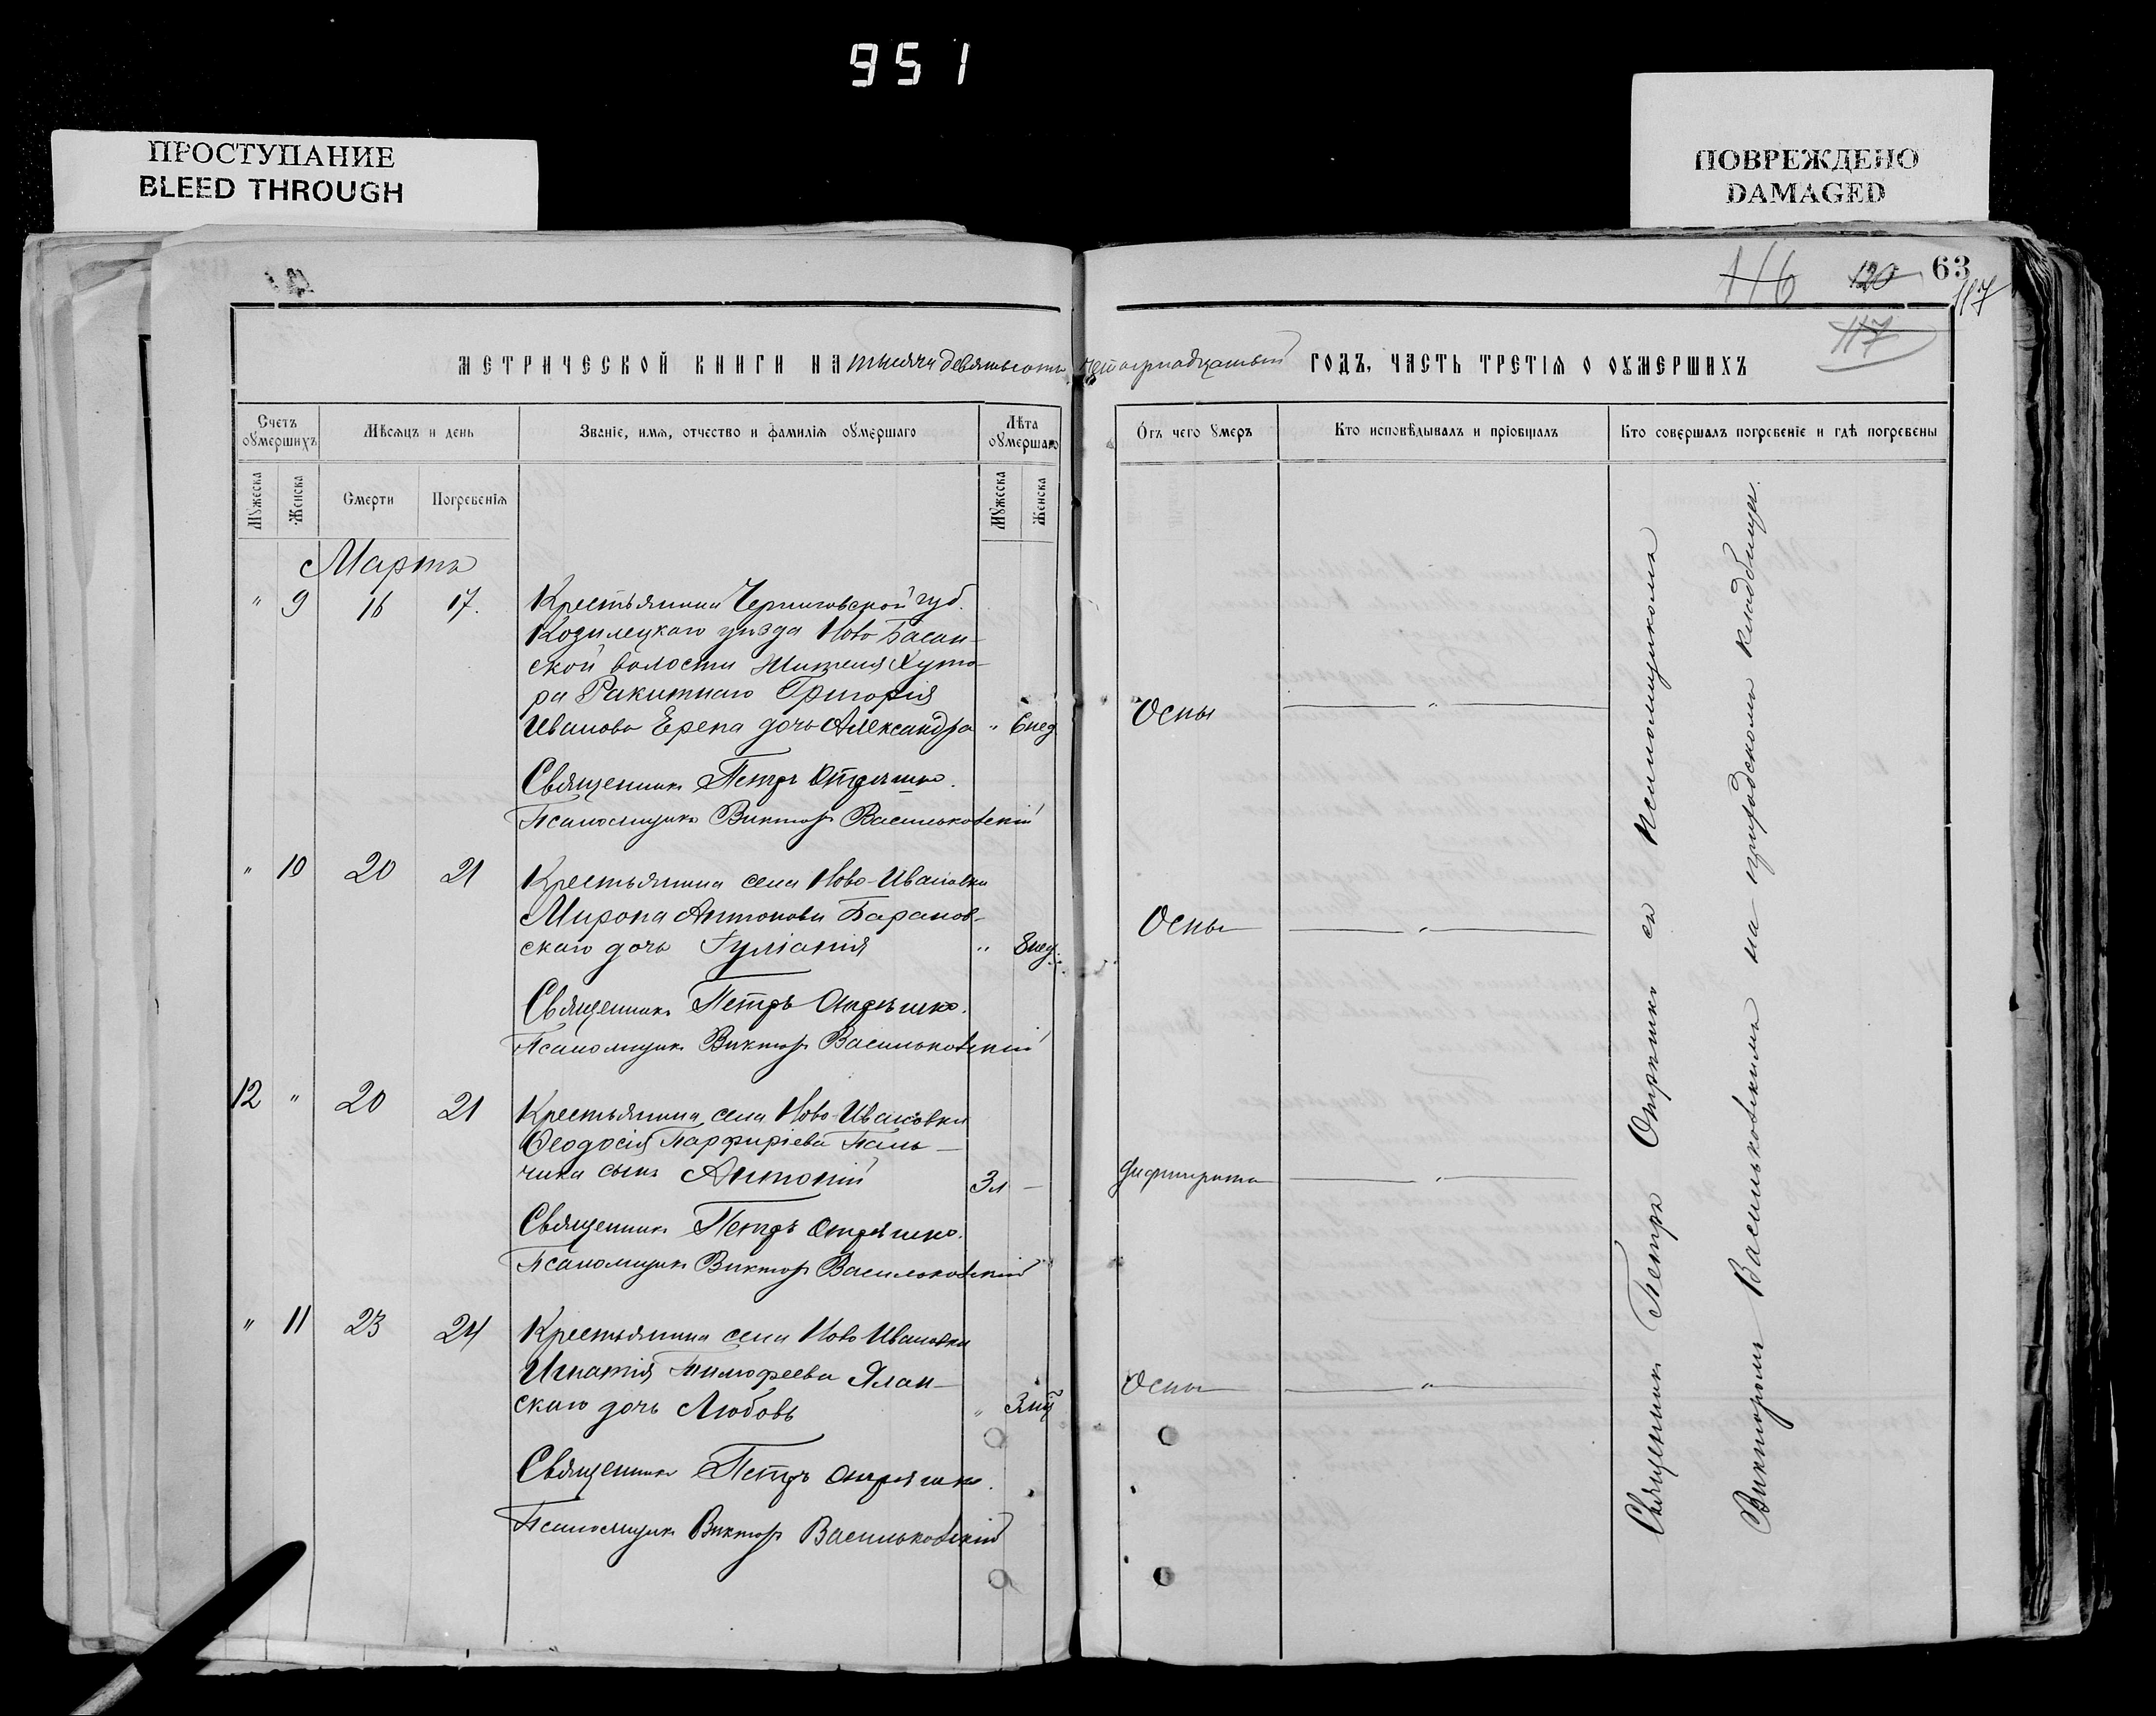 951
ПРОСТУПАНИЕ
BLEED THROUGH
ПОВРЕЖДЕНО
DAMAGED
116 120 63
117
117
МЕТРИЧЕСКОЙ КНИГИ НА тысяча девятьсотъ четырнадцатый ГОДЪ, ЧАСТЬ ТРЕТІЯ О ОУМЕРШИХЪ
Счетъ оумершихъ
Мѣсяцъ и день
Званіе, имя, отчество и фамилія оумершаго
Лѣта оумершаго
Отъ чего умеръ
Кто исповѣдывалъ и пріобщалъ
Кто совершалъ погребеніе и гдѣ погребены
Мужеска
Женска
Смерти
Погребенія
Мужеска
Женска
Марта
" 9 16 17. Крестьянина Черниговской губ.
Козелецкаго уѣзда Ново Басан-
ской волости жителя Хуто-
ра Ракитнаго Григорія
Иванова Ерепа дочь Александра " 6 нед Оспы "
Священникъ Петръ Отрѣшко.
Псаломщикъ Викторъ Васильковскій
" 10 20 21 Крестьянина села Ново-Ивановки
Мирона Антонова Баранов-
скаго дочь Іуліанія " 8 нед. Оспы "
Священникъ Петръ Отрѣшко.
Псаломщикъ Викторъ Васильковскій
12 " 20 21 Крестьянина села Ново-Ивановки
Ѳеодосія Парфиріева Паль-
чика сынъ Антоній 3 л — Дифтерита "
Священникъ Петръ Отрѣшко.
Псаломщикъ Викторъ Васильковскій
" 11 23 24 Крестьянина села Ново Ивановки
Игнатія Тимофеева Ялан-
скаго дочь Любовь " Оспы "
Священникъ Петръ Отрѣшко.
Псаломщикъ Викторъ Васильковскій
Священникъ Петръ Отрѣшко съ Псаломщикомъ
Викторомъ Васильковскимъ на приходскомъ кладбищѣ.